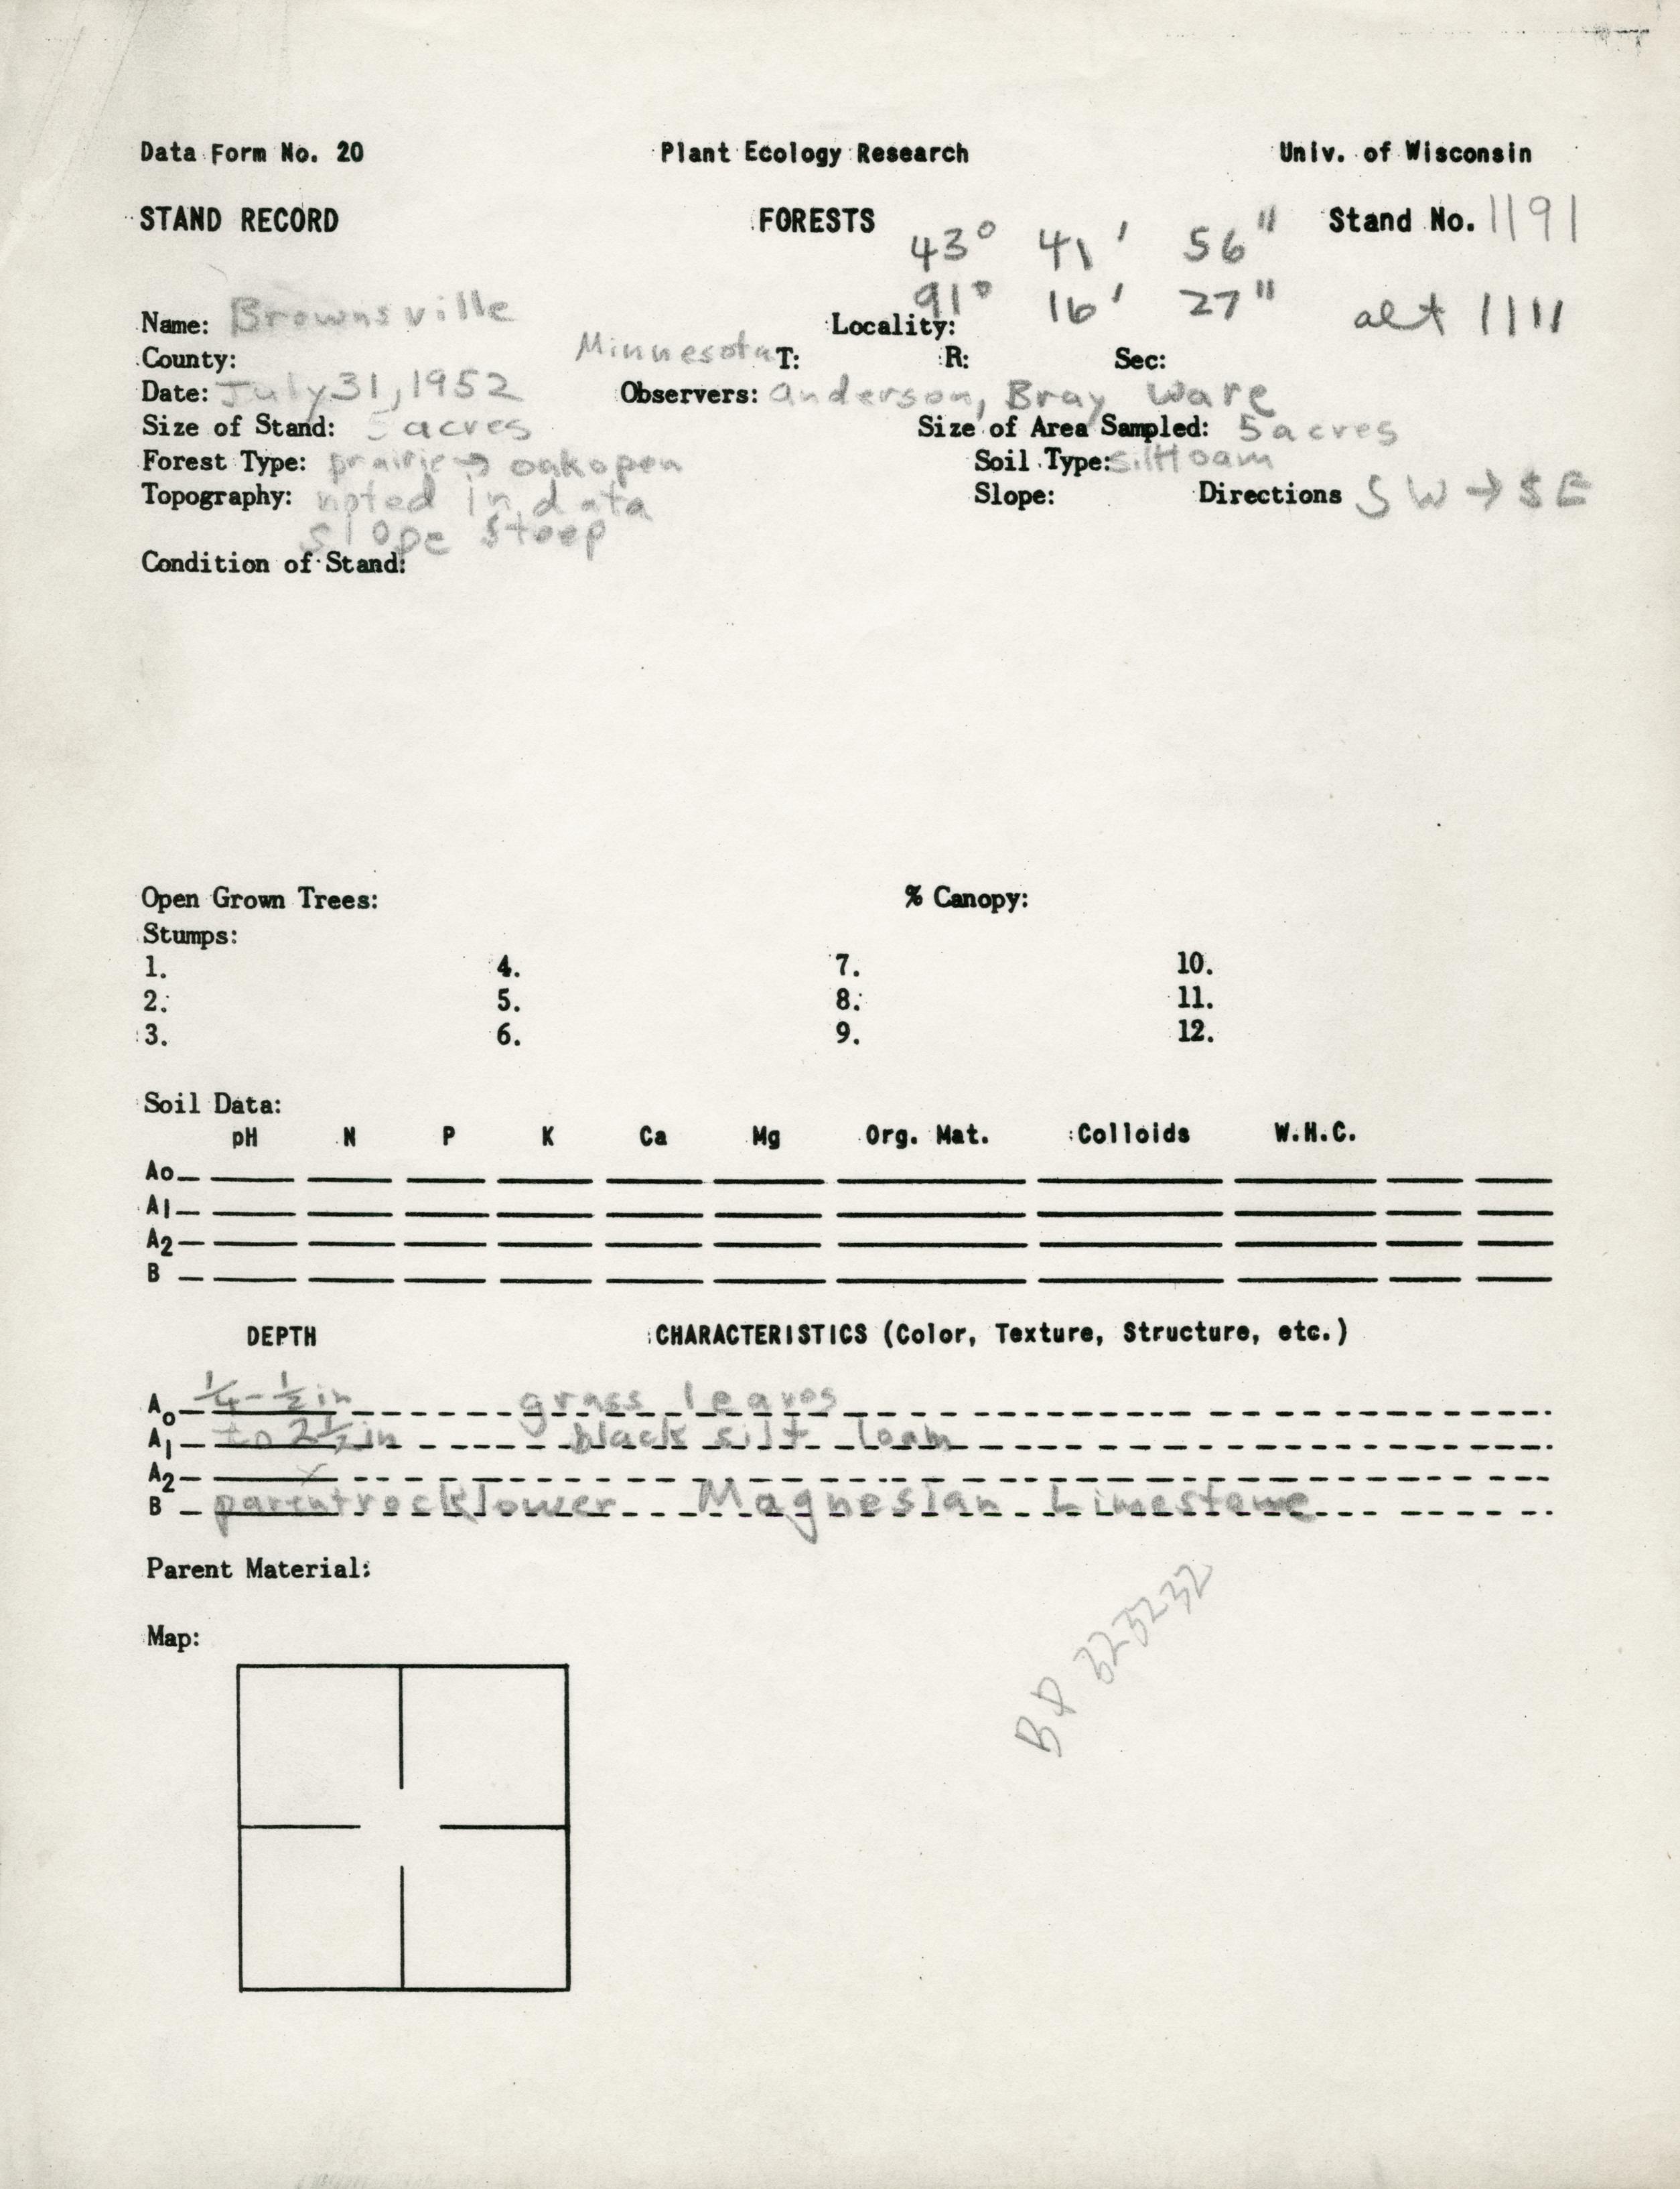 Data Form No. 20 Plant Ecology Research Univ. of Wisconsin
STAND RECORD FORESTS Stand No. 1191
43° 41' 56"
91° 16' 27" alt 1111
Name: Brownsville Locality:
County: Minnesota T: R: Sec:
Date: July 31, 1952 Observers: Anderson, Bray Ware
Size of Stand: 5 acres Size of Area Sampled: 5 acres
Forest Type: prairie → oak open Soil Type: silt loam
Topography: noted in data Slope: Directions SW → SE
slope steep
Condition of Stand:
Open Grown Trees: % Canopy:
Stumps:
1. 4. 7. 10.
2. 5. 8. 11.
3. 6. 9. 12.
Soil Data:
pH N P K Ca Mg Org. Mat. Colloids W.H.C.
Ao
A1
A2
B
DEPTH CHARACTERISTICS (Color, Texture, Structure, etc.)
Ao 1/4 - 1/2 in grass leaves
A1 to 2 1/2 in black silt loam
A2 x
B parent rock lower Magnesian Limestone
Parent Material:
BP 323232
Map: